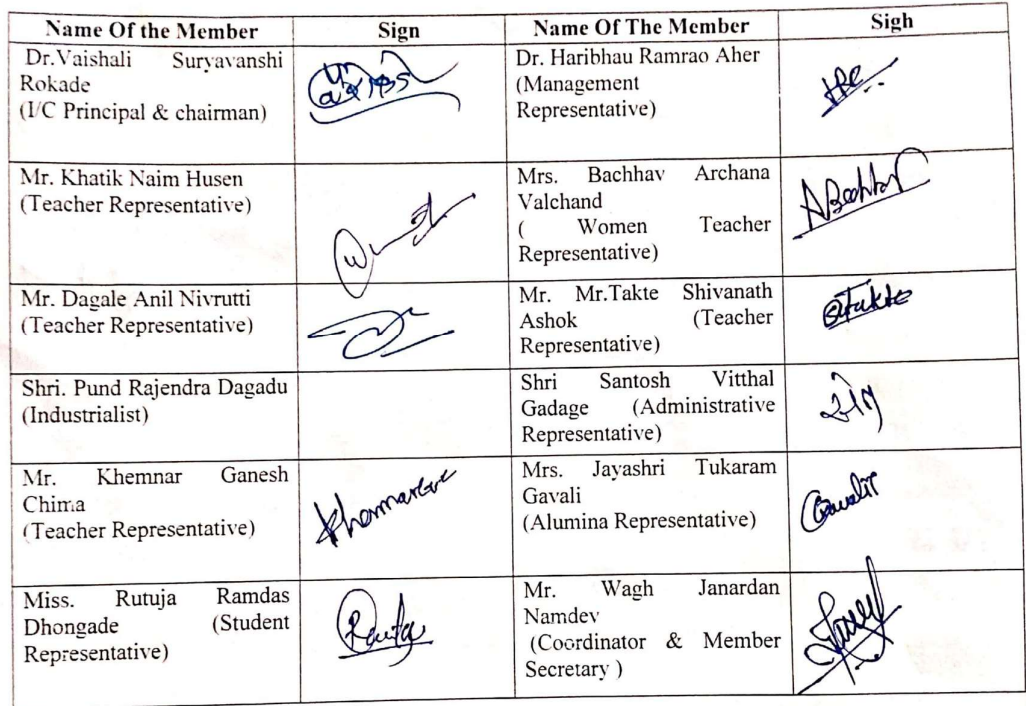 Name Of the Member Sign Name Of The Member Sigh
Dr.Vaishali Suryavanshi
Rokade
(I/C Principal & chairman)
Dr. Haribhau Ramrao Aher
(Management
Representative)
Mr. Khatik Naim Husen
(Teacher Representative)
Mrs. Bachhav Archana
Valchand
( Women Teacher
Representative)
ABachhav
Mr. Dagale Anil Nivrutti
(Teacher Representative)
Mr. Mr.Takte Shivanath
Ashok (Teacher
Representative)
Shri. Pund Rajendra Dagadu
(Industrialist)
Shri Santosh Vitthal
Gadage (Administrative
Representative)
Mr. Khemnar Ganesh
Chima
(Teacher Representative)
Mrs. Jayashri Tukaram
Gavali
(Alumina Representative)
Miss. Rutuja Ramdas
Dhongade (Student
Representative)
Mr. Wagh Janardan
Namdev
(Coordinator & Member
Secretary )